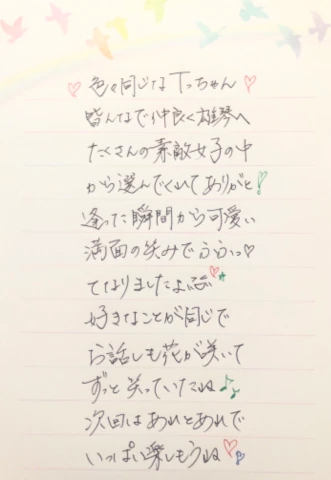 色々同じな Tっちゃん
皆んなで仲良く雄琴へ
たくさんの素敵女子の中
から選んでくれてありがと!
逢った瞬間から可愛い
満面の笑みでふふっ♡
てなりましたよ
好きなことが同じで
お話しも花が咲いて
ずっと笑っていたね♪
次回はあれとあれで
いっぱい楽しもうね♡